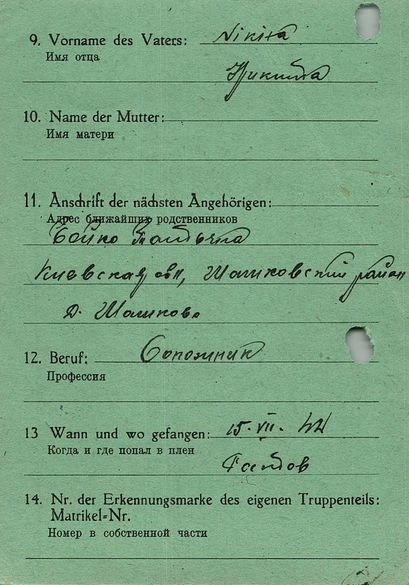 9. Vorname des Vaters: Nikita
Имя отца
Никита
10. Name der Mutter:
Имя матери
11. Anschrift der nächsten Angehörigen:
Адрес ближайших родственников
Бойко
Киевская обл, Шашковский район
д. Шашково
12. Beruf: Сапожник
Профессия
13 Wann und wo gefangen: 15. VII. 42
Когда и где попал в плен
14. Nr. der Erkennungsmarke des eigenen Truppenteils:
Matrikel-Nr.
Номер в собственной части